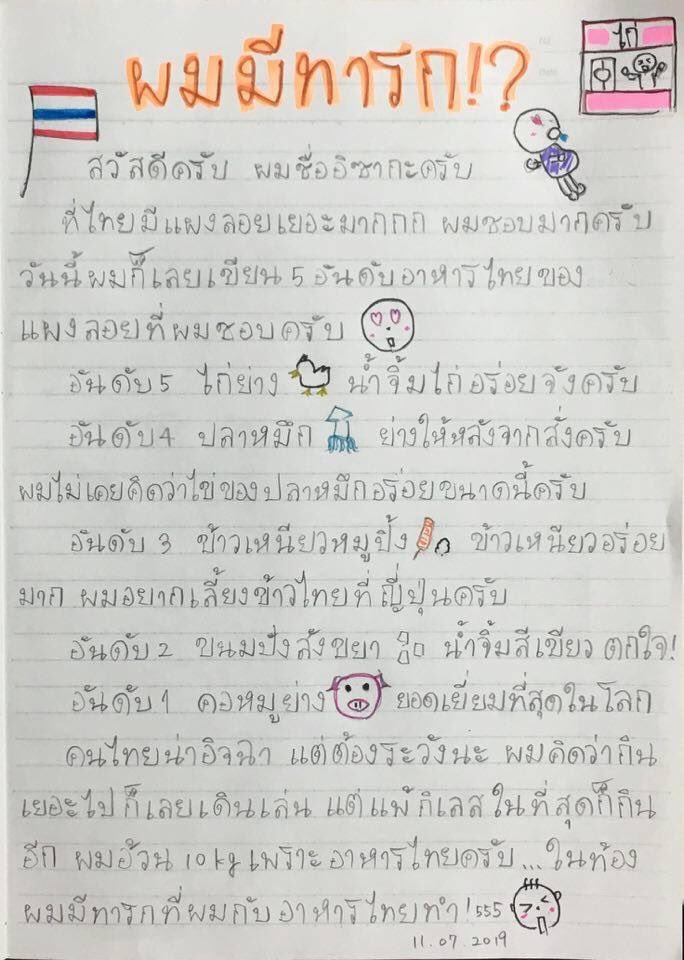 ไก่
ผมมีทารก!?
สวัสดีครับ ผมชื่ออิซากะครับ
ที่ไทยมีแผงลอยเยอะมากกก ผมชอบมากครับ
วันนี้ผมก็เลยเขียน 5 อันดับอาหารไทยของ
แผงลอยที่ผมชอบครับ
อันดับ 5 ไก่ย่าง น้ำจิ้มไก่อร่อยจังครับ
อันดับ 4 ปลาหมึก ย่างให้หลังจากสั่งครับ
ผมไม่เคยคิดว่าไข่ของปลาหมึกอร่อยขนาดนี้ครับ
อันดับ 3 ข้าวเหนียวหมูปิ้ง ข้าวเหนียวอร่อย
มาก ผมอยากเลี้ยงข้าวไทยที่ญี่ปุ่นครับ
อันดับ 2 ขนมปังสังขยา น้ำจิ้มสีเขียว ตกใจ!
อันดับ 1 คอหมูย่าง ยอดเยี่ยมที่สุดในโลก
คนไทยน่าอิจฉา แต่ต้องระวังนะ ผมคิดว่ากิน
เยอะไป ก็เลยเดินเล่น แต่แพ้กิเลสในที่สุดก็กิน
อีก ผมอ้วน 10 kg เพราะอาหารไทยครับ...ในท้อง
ผมมีทารกที่ผมกับอาหารไทยทำ! 555
11.07.2019